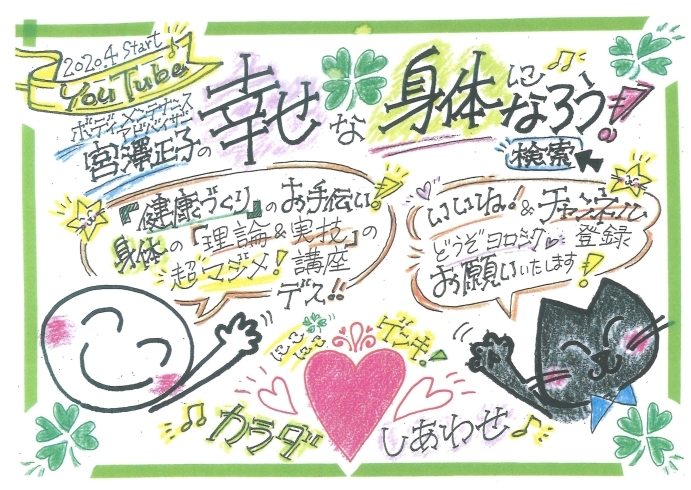 2020.4 Start
YouTube
ボディメンテナンス
アドバイザー
宮澤正子の
幸せな
身体に
なろう!
検索
『健康づくり』のお手伝い!
身体の「理論&実技」の
超マジメ!講座
デス!!
いいね!&チャンネル
登録
どうぞヨロシク
お願いいたします!
ゲンキ!
カラダ
しあわせ